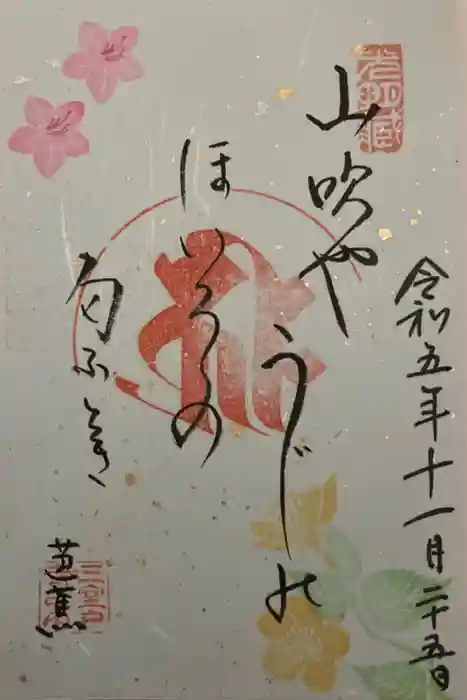 光明蔵
令和五年十一月二十五日
山吹や
うじの
ほいろの
匂ふとき
芭蕉